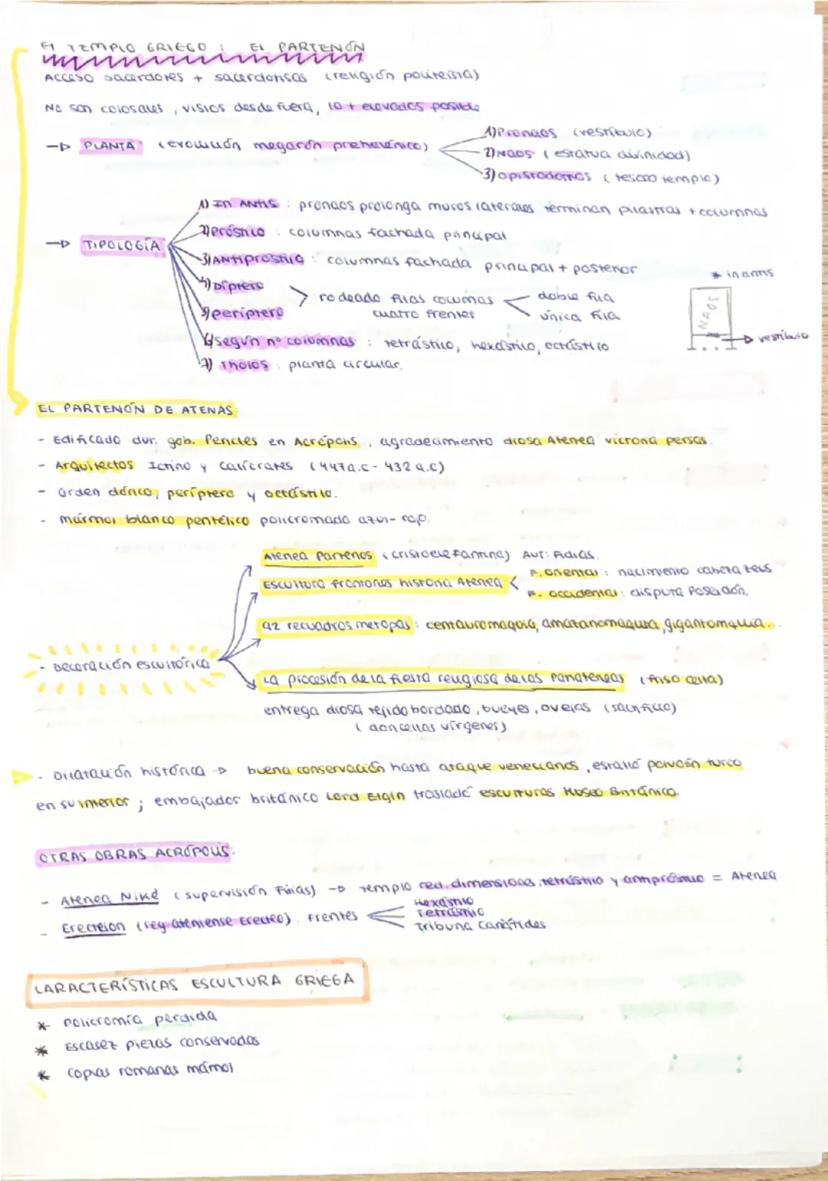 EL TEMPLO GRIEGO: EL PARTENÓN
Acceso sacerdotes + sacerdotisas (religión politeísta)
No son colosales, vistos desde fuera, lo + elevados posible
→ PLANTA (evolución megarón prehelénico)
1) Pronaos (vestíbulo)
2) Naos (estatua divinidad)
3) opistodomos (tesoro templo)
→ TIPOLOGÍA
1) In ANTIS: pronaos prolonga muros laterales terminan pilastras + columnas
2) Próstilo: columnas fachada principal
3) ANTIpróstilo: columnas fachada principal + posterior
4) Díptero
5) períptero
rodeado filas columnas
cuatro frentes
doble fila
única fila
6) según nº columnas: tetrástilo, hexástilo, octástilo
7) Tholos: planta circular.
* in antis
NAOS
→ vestíbulo
EL PARTENÓN DE ATENAS:
- Edificado dur. gob. Pericles en Acrópolis, agradecimiento diosa Atenea victoria persas.
- Arquitectos Ictino y Calícrates (447a.c - 432 a.c)
- orden dórico, períptero y octástilo.
- mármol blanco pentélico policromado azul-rojo.
- Decoración escultórica
Atenea Partenos (crisoelefantina) Aut: Fidias.
Escultura frontones historia Atenea
F. oriental: nacimiento cabeza Zeus
F. occidental: disputa Poseidón.
92 recuadros metopas: centauromaquia, amazonomaquia, gigantomaquia...
La procesión de la fiesta religiosa de las Panateneas (friso cella)
entrega diosa tejido bordado, bueyes, ovejas (sacrificio)
(doncellas vírgenes)
- Dilatación histórica → buena conservación hasta ataque venecianos, estalló polvorín turco
en su interior; embajador británico Lord Elgin trasladó esculturas Museo Británico.
OTRAS OBRAS ACRÓPOLIS:
- Atenea Niké (supervisión Fidias) → templo red. dimensiones, tetrástilo y antipróstilo = Atenea
- Erecteion (rey ateniense Erecteo). Frentes
Hexástilo
Tetrástilo
Tribuna Cariátides
CARACTERÍSTICAS ESCULTURA GRIEGA
* Policromía perdida
* Escasez piezas conservadas
* copias romanas mármol